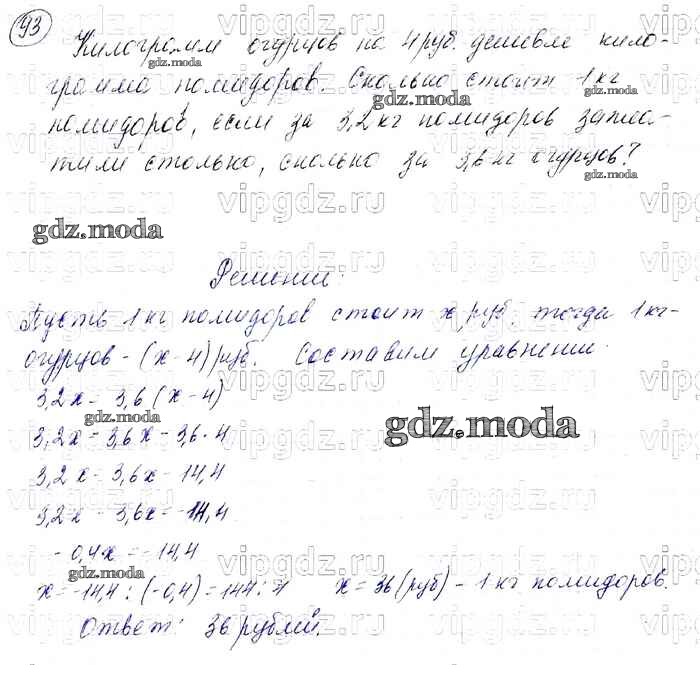 93
Килограмм огурцов на 4 руб. дешевле кило-
грамма помидоров. Сколько стоит 1 кг
помидоров, если за 3,2 кг помидоров запла-
тили столько, сколько за 3,6 кг огурцов?
gdz.moda
Решение:
Пусть 1 кг помидоров стоит x руб. тогда 1 кг-
огурцов - (x-4) руб. Составим уравнение:
3,2x = 3,6(x-4)
3,2x = 3,6x - 3,6·4
gdz.moda
3,2x = 3,6x - 14,4
3,2x - 3,6x = -14,4
-0,4x = -14,4
x = -14,4 : (-0,4) = 144 : 4 x = 36 (руб) - 1 кг помидоров.
Ответ: 36 рублей.
vipgdz.ru